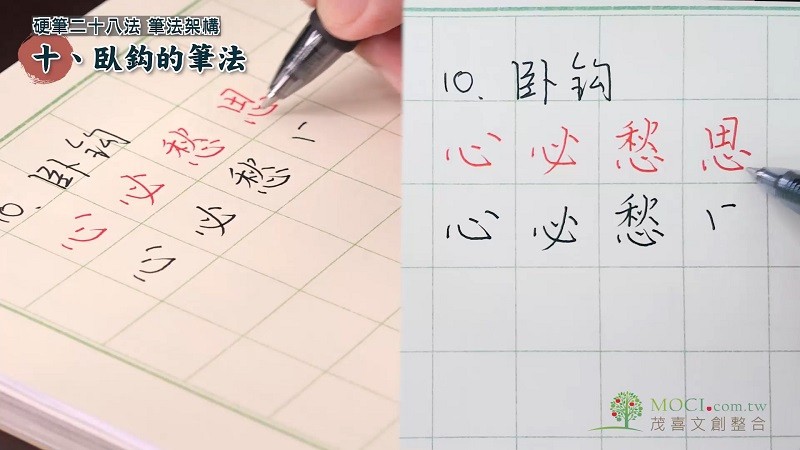 硬筆二十八法 筆法架構
十、臥鈎的筆法
10. 卧鈎
心 必 愁 思
心 必 愁
10. 卧鈎
心 必 愁 思
心 必 愁
MOCI.com.tw
茂喜文創整合